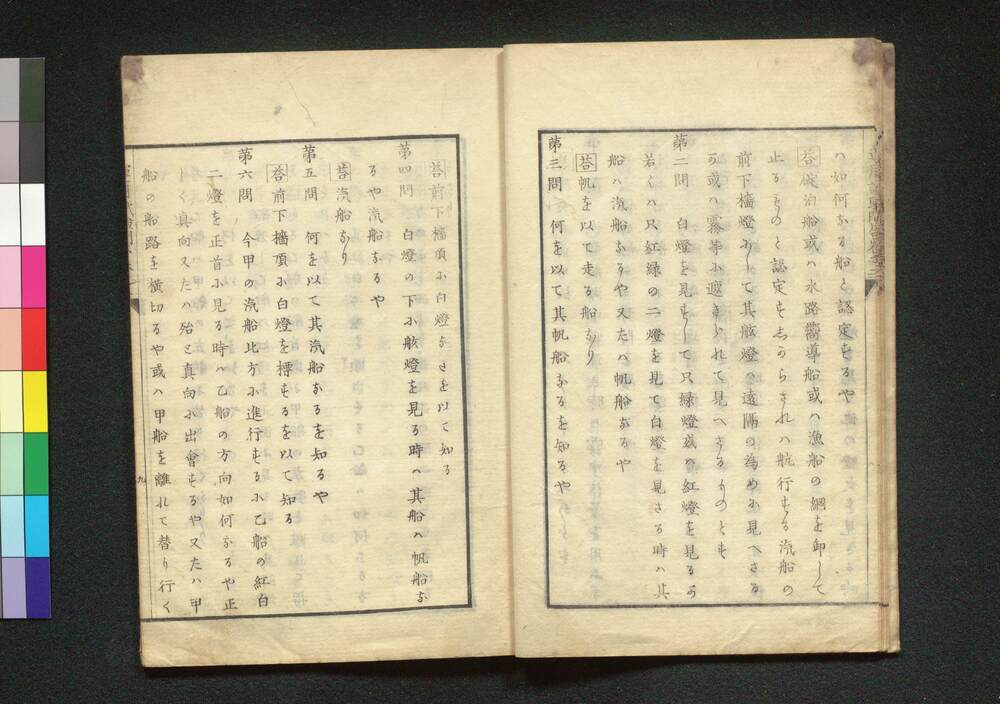 ハ如何なる船と認定するや
荅 碇泊船或ハ水路嚮導船或ハ漁船の綱を卸して
止るものと認定すしからされハ航行する汽船の
前下檣燈にして其舷燈ハ遠隔の為めに見へさる
か或ハ霧等に遮きられて見へさるものとす
第二問 白燈を見すして只緑燈或ハ紅燈を見るか
若くハ只紅緑の二燈を見て白燈を見さる時ハ其
船ハ汽船なるや又たハ帆船なるや
荅 帆を以て走る船なり
第三問 何を以て其帆船なるを知るや
荅 前下檣頂に白燈なきを以て知る
第四問 白燈の下に舷燈を見る時ハ其船ハ帆船な
るや汽船なるや
荅 汽船なり
第五問 何を以て其汽船なるを知るや
荅 前下檣頂に白燈を標するを以て知る
第六問 今甲の汽船此方に進行するに乙船の紅白
二燈を正首に見る時ハ乙船の方向如何なるや正
しく真向又たハ殆と真向に出會するや又たハ甲
船の船路を横切るや或ハ甲船を離れて替り行く
九